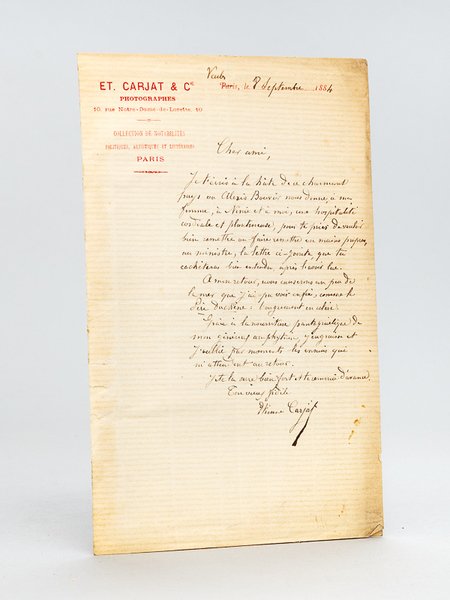 ET. CARJAT & Cie
PHOTOGRAPHES
10, rue Notre-Dame-de-Lorette, 10
COLLECTION DE NOTABILITÉS
POLITIQUES, ARTISTIQUES ET LITTÉRAIRES
PARIS
Veules
Paris, le 8 Septembre 1884
Cher ami,
Je t'écris à la hâte de ce charmant
pays où Alexis Bouvier nous donne, à ma
femme, à Ninie et à moi, une hospitalité
cordiale et plantureuse, pour te prier de vouloir
bien remettre ou faire remettre en mains propres
au ministre, la lettre ci-jointe que tu
cachèteras bien entendu, après l'avoir lue.
A mon retour, nous causerons un peu de
la mer que j'ai pu voir enfin, comme le
Père Duchêne
Grâce à la nourriture pantagruélique de
mon généreux amphytrion, j'engraisse et
j'oublie par moments les ennuis que
m'attendent au retour.
Je te la serre bien fort et te remercie d'avance.
Ton vieux fidèle
Etienne Carjat